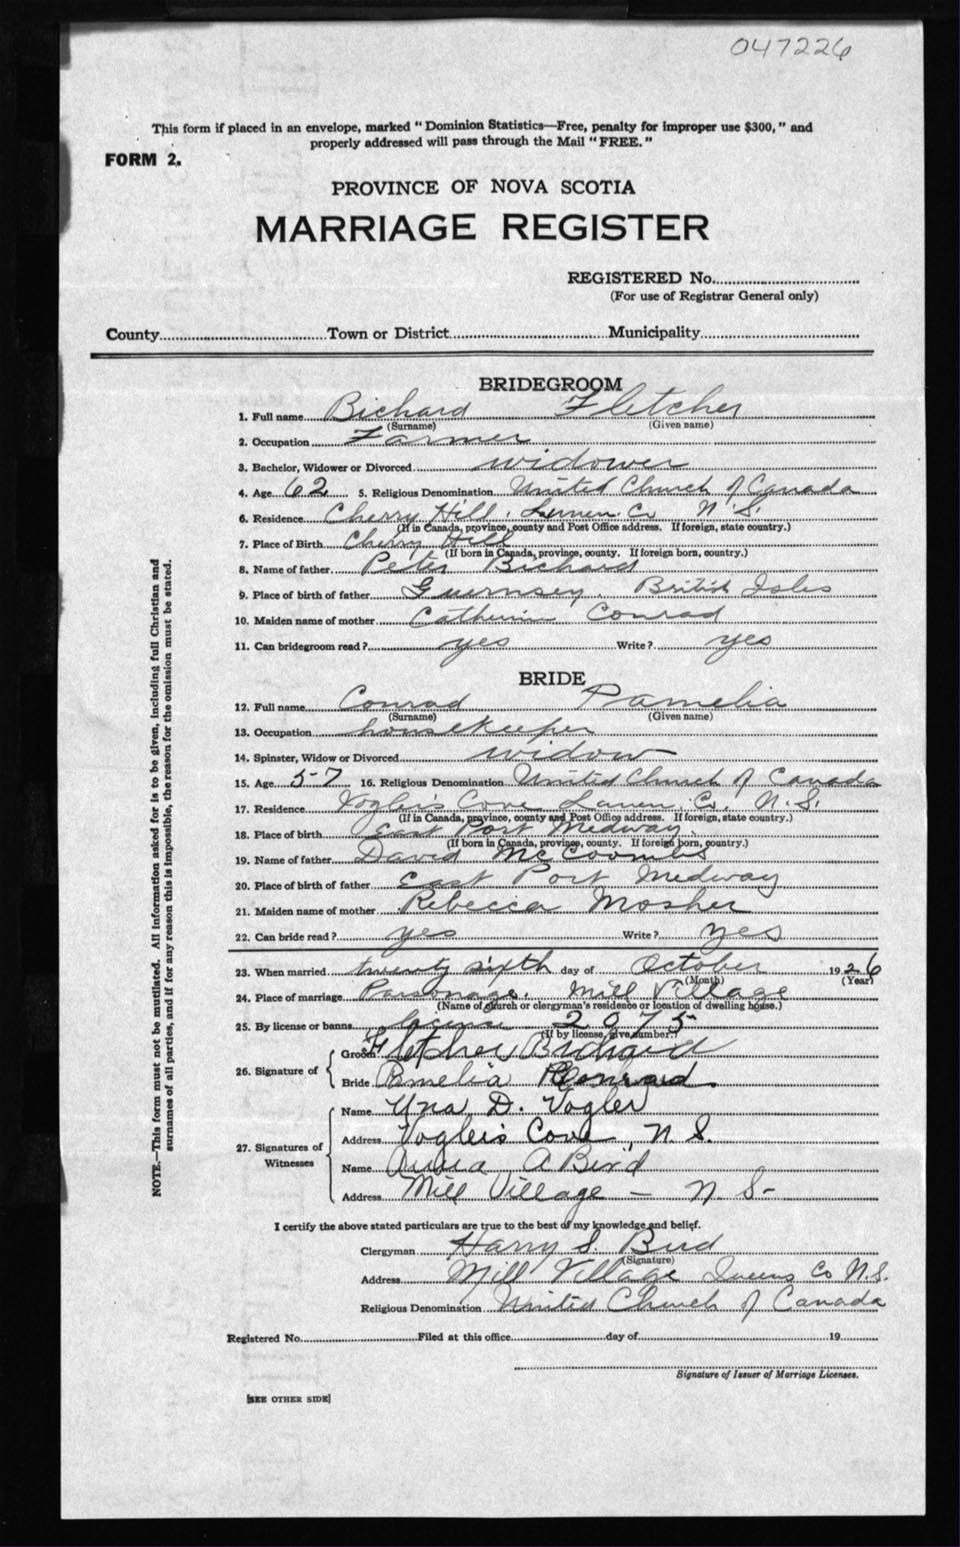 047226
This form if placed in an envelope, marked "Dominion Statistics—Free, penalty for improper use $300," and
properly addressed will pass through the Mail "FREE."
FORM 2.
PROVINCE OF NOVA SCOTIA
MARRIAGE REGISTER
REGISTERED No.
(For use of Registrar General only)
County Town or District Municipality
BRIDEGROOM
1. Full name Richard Fletcher
(Surname) (Given name)
2. Occupation Farmer
3. Bachelor, Widower or Divorced widower
4. Age 62 5. Religious Denomination United Church of Canada
6. Residence Cherry Hill, Lunen. Co N.S.
(If in Canada, province, county and Post Office address. If foreign, state country.)
7. Place of Birth Cherry Hill
(If born in Canada, province, county. If foreign born, country.)
8. Name of father Peter Richard
9. Place of birth of father Guernsey, British Isles
10. Maiden name of mother Catherine Conrad
11. Can bridegroom read? yes Write? yes
BRIDE
12. Full name Conrad Pamelia
(Surname) (Given name)
13. Occupation housekeeper
14. Spinster, Widow or Divorced widow
15. Age 57 16. Religious Denomination United Church of Canada
17. Residence Vogler's Cove Lunen. Co. N.S.
(If in Canada, province, county and Post Office address. If foreign, state country.)
18. Place of birth East Port Medway.
(If born in Canada, province, county. If foreign born, country.)
19. Name of father David McCoombs
20. Place of birth of father East Port Medway
21. Maiden name of mother Rebecca Mosher
22. Can bride read? yes Write? yes
23. When married twenty sixth day of October 1926
(Month) (Year)
24. Place of marriage Parsonage, Mill Village
(Name of church or clergyman's residence or location of dwelling house.)
25. By license or banns license 2075
(If by license, give number.)
26. Signature of
Groom Fletcher Richard
Bride Pamelia Conrad
27. Signatures of Witnesses
Name Una D. Vogler
Address Vogler's Cove, N.S.
Name A Bird
Address Mill Village — N S-
I certify the above stated particulars are true to the best of my knowledge and belief.
Clergyman Harry S. Bird
(Signature)
Address Mill Village Queens Co N.S.
Religious Denomination United Church of Canada
Registered No. Filed at this office day of 19
Signature of Issuer of Marriage Licenses.
[SEE OTHER SIDE]
NOTE.—This form must not be mutilated. All information asked for is to be given, including full Christian and
surnames of all parties, and if for any reason this is impossible, the reason for the omission must be stated.